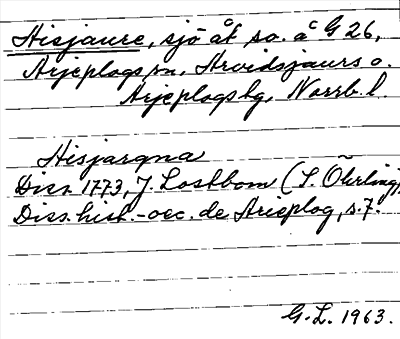 Hisjaure, sjö åt so. å G 26,
Arjeplogs sn, Arvidsjaurs o.
Arjeplogs tg, Norrb. l.
Hisjargna
Diss. 1773, J. Lostbom (S. Öhrling,
Diss. hist.-oec. de Arieplog, s. 7.
G. L. 1963.